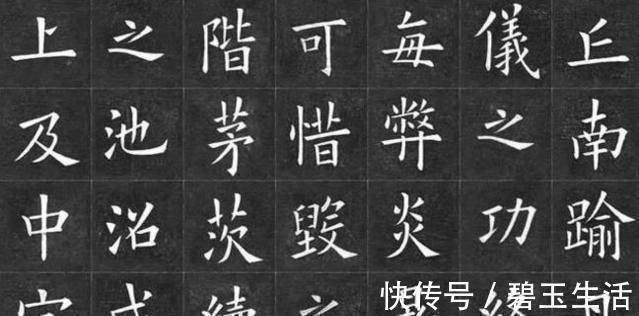 丘南踰
儀之功
每弊炎
可惜毀之
階茅茨續
之池沼
上及中
快传号 / 碧玉生活